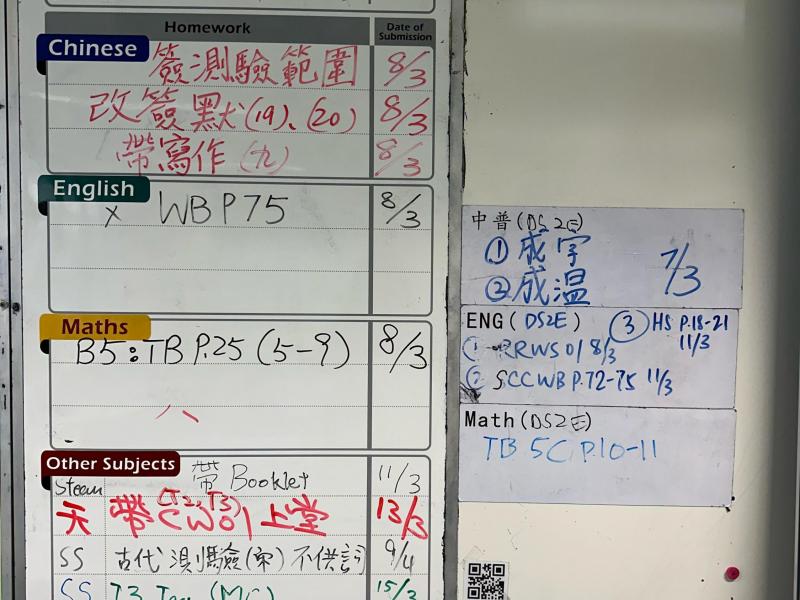 Homework Date of Submission
Chinese
簽測驗範圍 8/3
改簽默(19)、(20) 8/3
帶寫作(九) 8/3
English
x WB P75 8/3
Maths
B5:TB P.25 (5-9) 8/3
Other Subjects
Steam 帶 Booklet 11/3
(T2, T3)
天 帶CW01上堂 13/3
SS 古代測驗(宋)不供詞 9/4
15/3
中普(DS2E)
① 成宇 7/3
② 成溫
ENG (DS2E) ③ HS P.18-21
11/3
① RRWS01 8/3
② SCCWB P.72-75 11/3
Math(DS2E)
TB 5C P.10-11